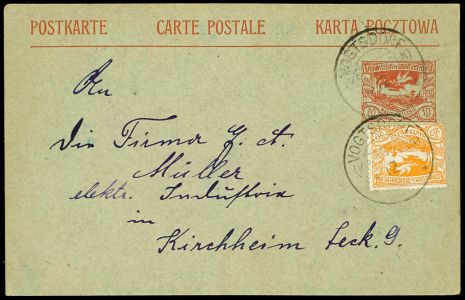 POSTKARTE CARTE POSTALE KARTA POCZTOWA
VOGTSDORF
10 10
VOGTSDORF
An
die Firma G. A.
Müller
elektr. Industrie
in
Kirchheim Teck.